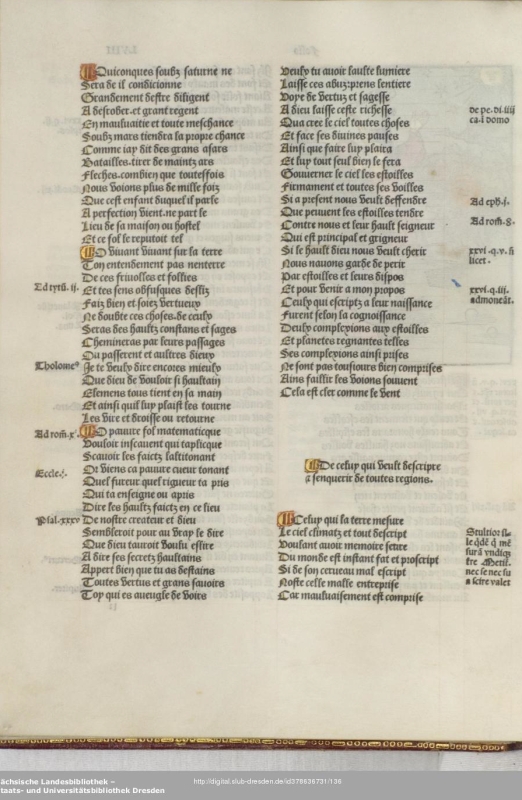 Quiconques soubz saturne ne
Sera de il condicionne
Grandement destre diligent
A desrober et grant regent
En mauluaitie et toute meschance
Soubz mars tiendra la propre chance
Comme iay dit des grans asars
Batailles tirer de maintz ars
Flesches combien que touteffois
Nous voions plus de mille foiz
Que cest enfant duquel il parle
A perfection vient ne part le
Lieu de sa maison ou hostel
Et ce fol se reputoit tel
O viuant viuant sur la terre
Ton entendement pas nenterre
De ces friuolles et follies
Ad tytū. ii.
Et tes sens obfusques dessiz
Faiz bien et soiez vertueux
Ne doubte ces choses de ceulx
Seras des haultz constans et sages
Chemineras par leurs passages
Ou passerent et aultres dieux
Tholome⁹
Je te veulx dire encores mieulx
Que dieu de vouloir si haultain
Elemens tous tient en sa main
Et ainsi quil luy plaist les tourne
Les vire et droisse ou retourne
Ad rom̄. x.
O pauure fol matematique
Vouloir inscauent qui taplicque
Scauoir les faictz laltitonant
Eccle. i.
Or viens ca pauure cueur tonant
Quel fureur quel rigueur ta pris
Qui ta enseigne ou apris
Dire les haultz faictz en ce lieu
Psal. xxxv
De nostre createur et dieu
Sembleroit pour au vray le dire
Que dieu tauroit voulu eslire
A dire ses secretz haultains
Appert bien que tu as destains
Toutes vertus et grans sauoirs
Top qui es aueugle de voirs
Veulx tu auoir saulte lumiere
Laisse ces abuz: prens sentiere
Voye de vertuz et sagesse
A dieu laisse ceste richesse
de pe. di. iiii
ca. i domo
Qua cree le ciel toutes choses
Et face ses diuines pauses
Ainsi que faire luy plaira
Et luy tout seul bien le fera
Gouuerner le ciel les estoilles
Firmament et toutes ses voilles
Si a present nous veult deffendre
Ad eph. i.
Que peuuent les estoilles tendre
Contre nous et leur hault seigneur
Ad rom̄. 8.
Qui est principal et grigneur
Si le hault dieu nous veult cherir
xxvi. q. v. si
licet.
Nous nauons garde de perir
Par estoilles et leurs dispos
Et pour venir a mon propos
xxvi. q. iii.
admoneāt.
Ceulx qui escriptz a leur naissance
Furent selon sa cognoissance
Deulx complexions aux estoilles
Et planetes regnantes telles
Ses complexions ainsi prises
Ne sont pas tousiours bien comprises
Ains faillir les voions souuent
Cela est cler comme le vent
De celuy qui veult descripre
a senquerir de toutes regions.
Celuy qui la terre mesure
Le ciel climatz et tout descript
Voulant auoir memoire seure
Du monde est instant fat et proscript
Si de son cerueau mal escript
Noste celle malle entreprise
Car mauluaisement est comprise